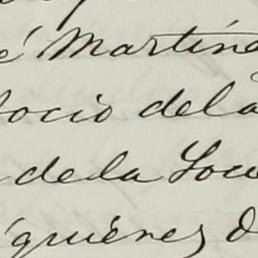 é Martíne
socio dela
dela Socie
quiénes d